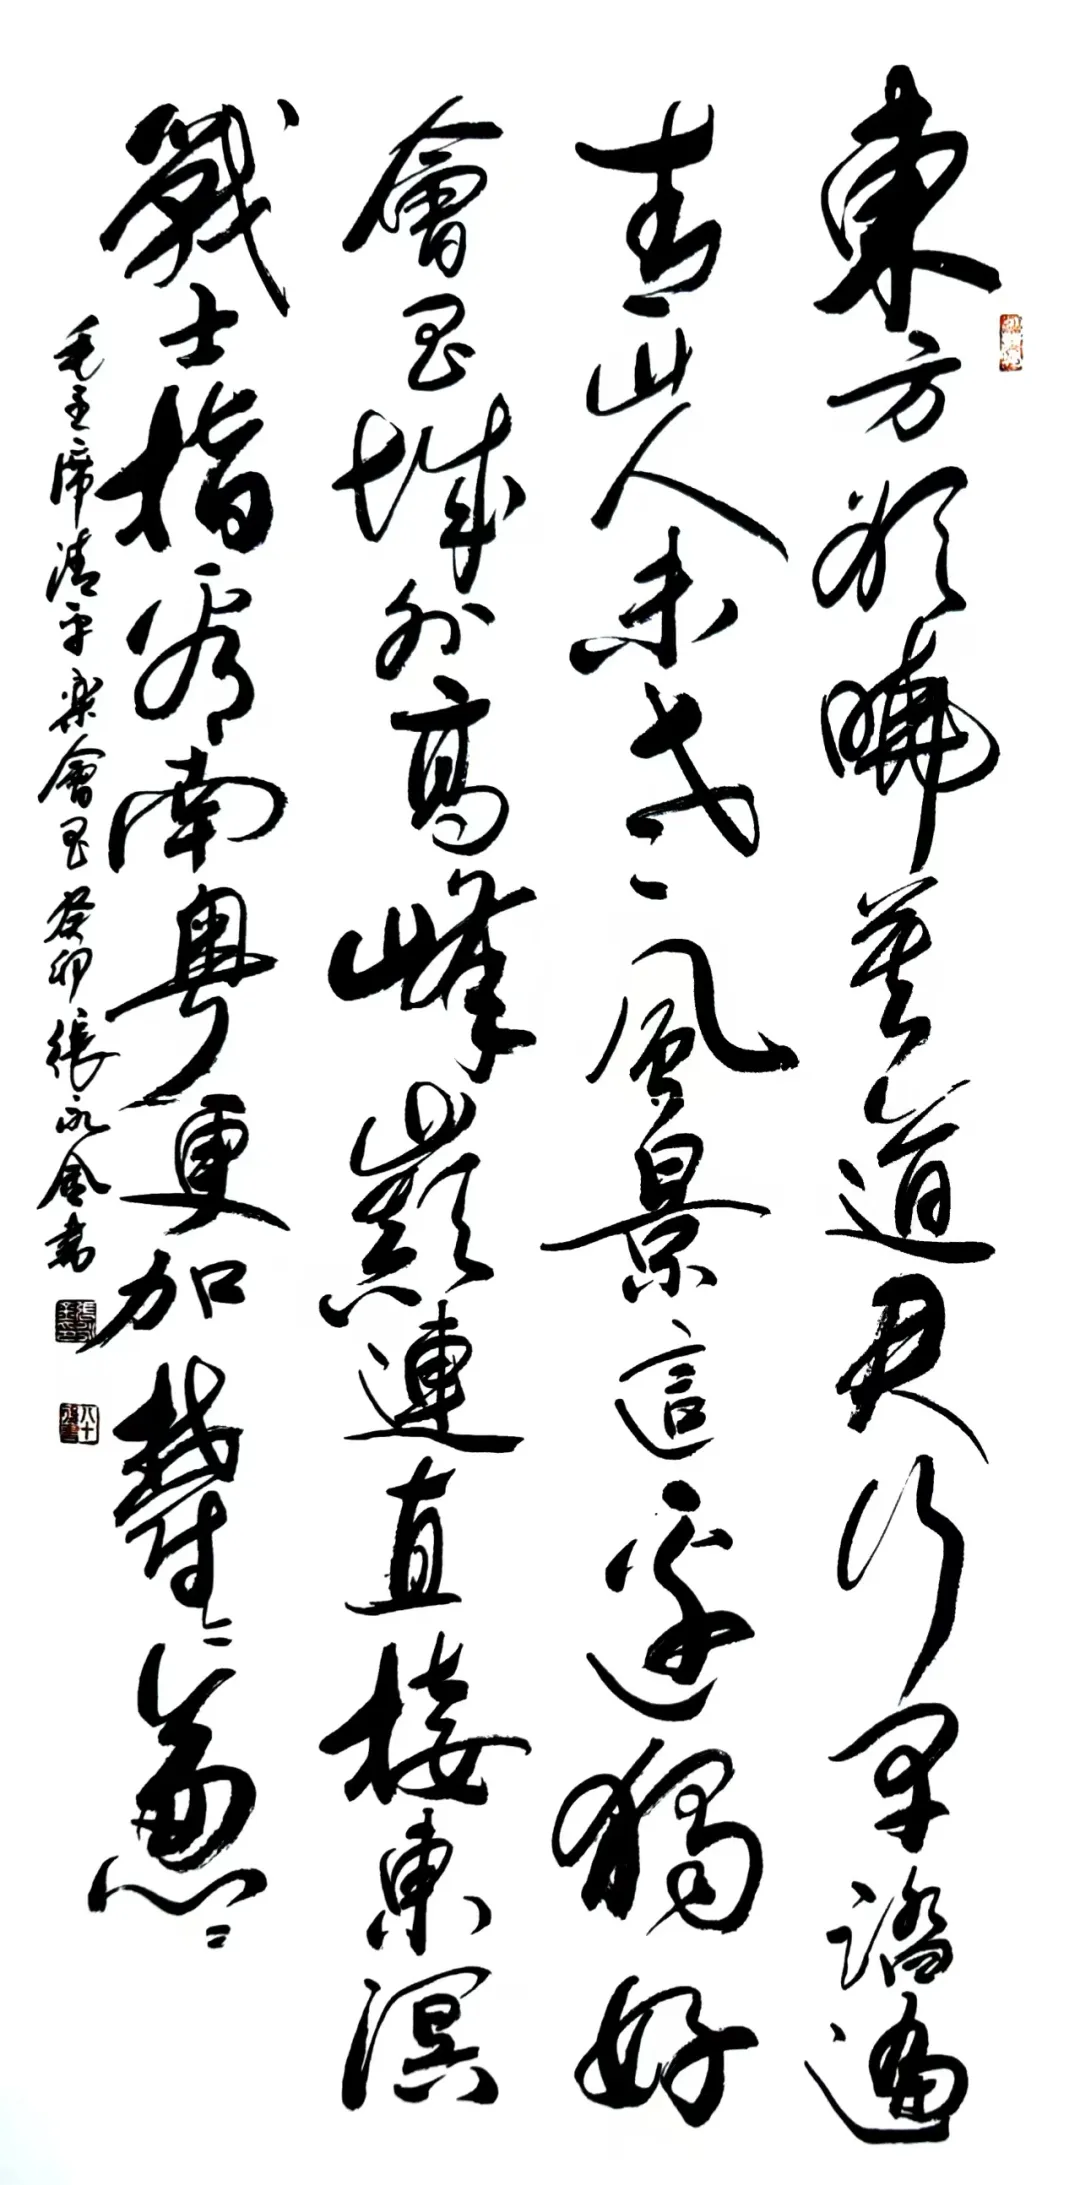 東方欲曉莫道君行早踏遍
青山人未老二風景這邊獨好
會昌城外高峰巔連直接東溟
戰士指看南粵更加鬱二蔥二
毛主席清平樂會昌癸卯張永金書
八十